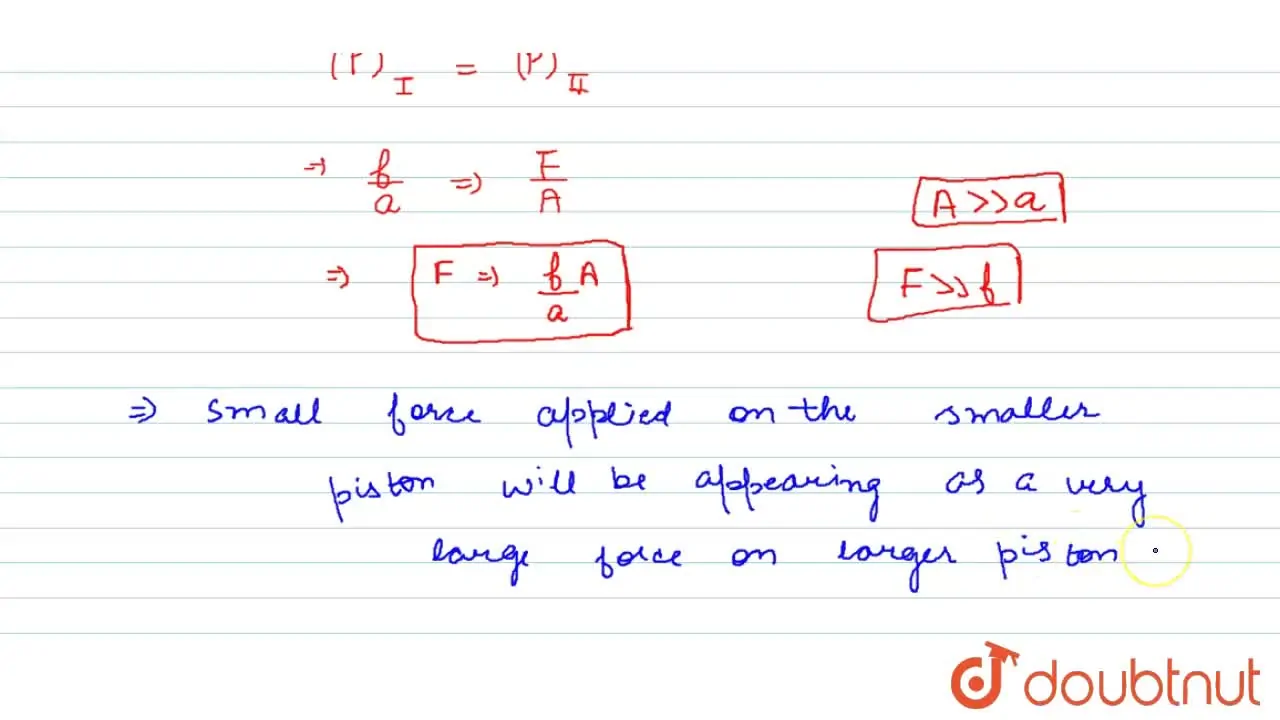 (P)_I = (P)_II
⇒ f/a ⇒ F/A
A >> a
⇒ F ⇒ f/a A
F >> f
⇒ small force applied on the smaller
piston will be appearing as a very
large force on larger piston
doubtnut